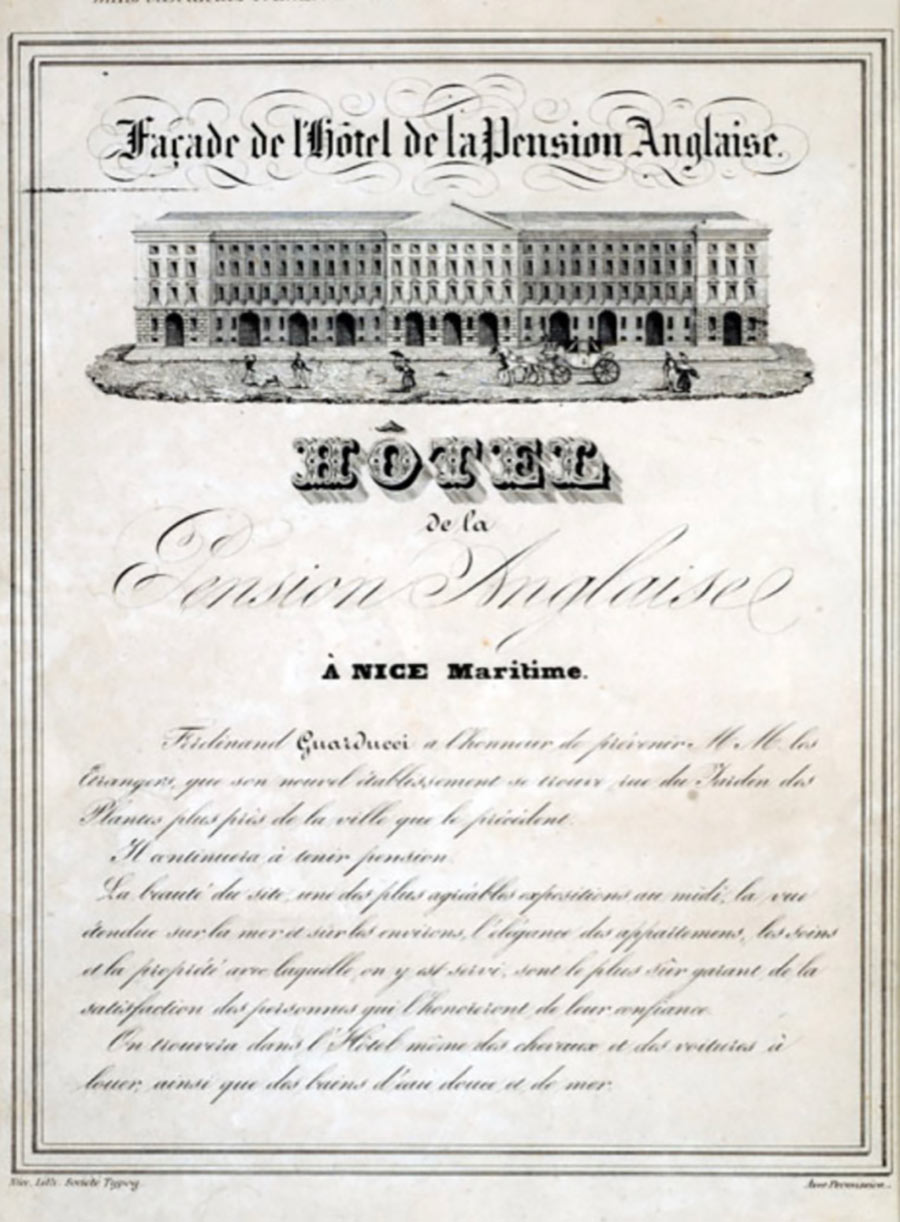 Façade de l'Hôtel de la Pension Anglaise.
HÔTEL
de la
Pension Anglaise
À NICE Maritime.
Ferdinand Guarducci a l'honneur de prévenir M.M. les
Étrangers, que son nouvel établissement se trouve rue du Jardin des
Plantes plus près de la ville que le précédent.
Il continuera à tenir pension.
La beauté du site, une des plus agréables expositions au midi, la vue
étendue sur la mer et sur les environs, l'élégance des appartemens, les soins
et la propreté avec laquelle on y est servi, sont le plus sûr garant de la
satisfaction des personnes qui l'honoreront de leur confiance.
On trouvera dans l'Hôtel même des chevaux et des voitures à
louer, ainsi que des bains d'eau douce et de mer.
Nice, Lith. Société Typog.
Avec Permission.